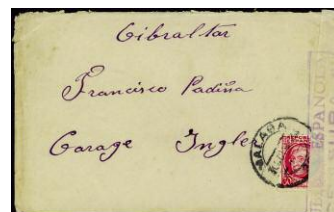 Gibraltar
Francisco Padiña
Garage Ingles
MALAGA
ESPAÑOLA